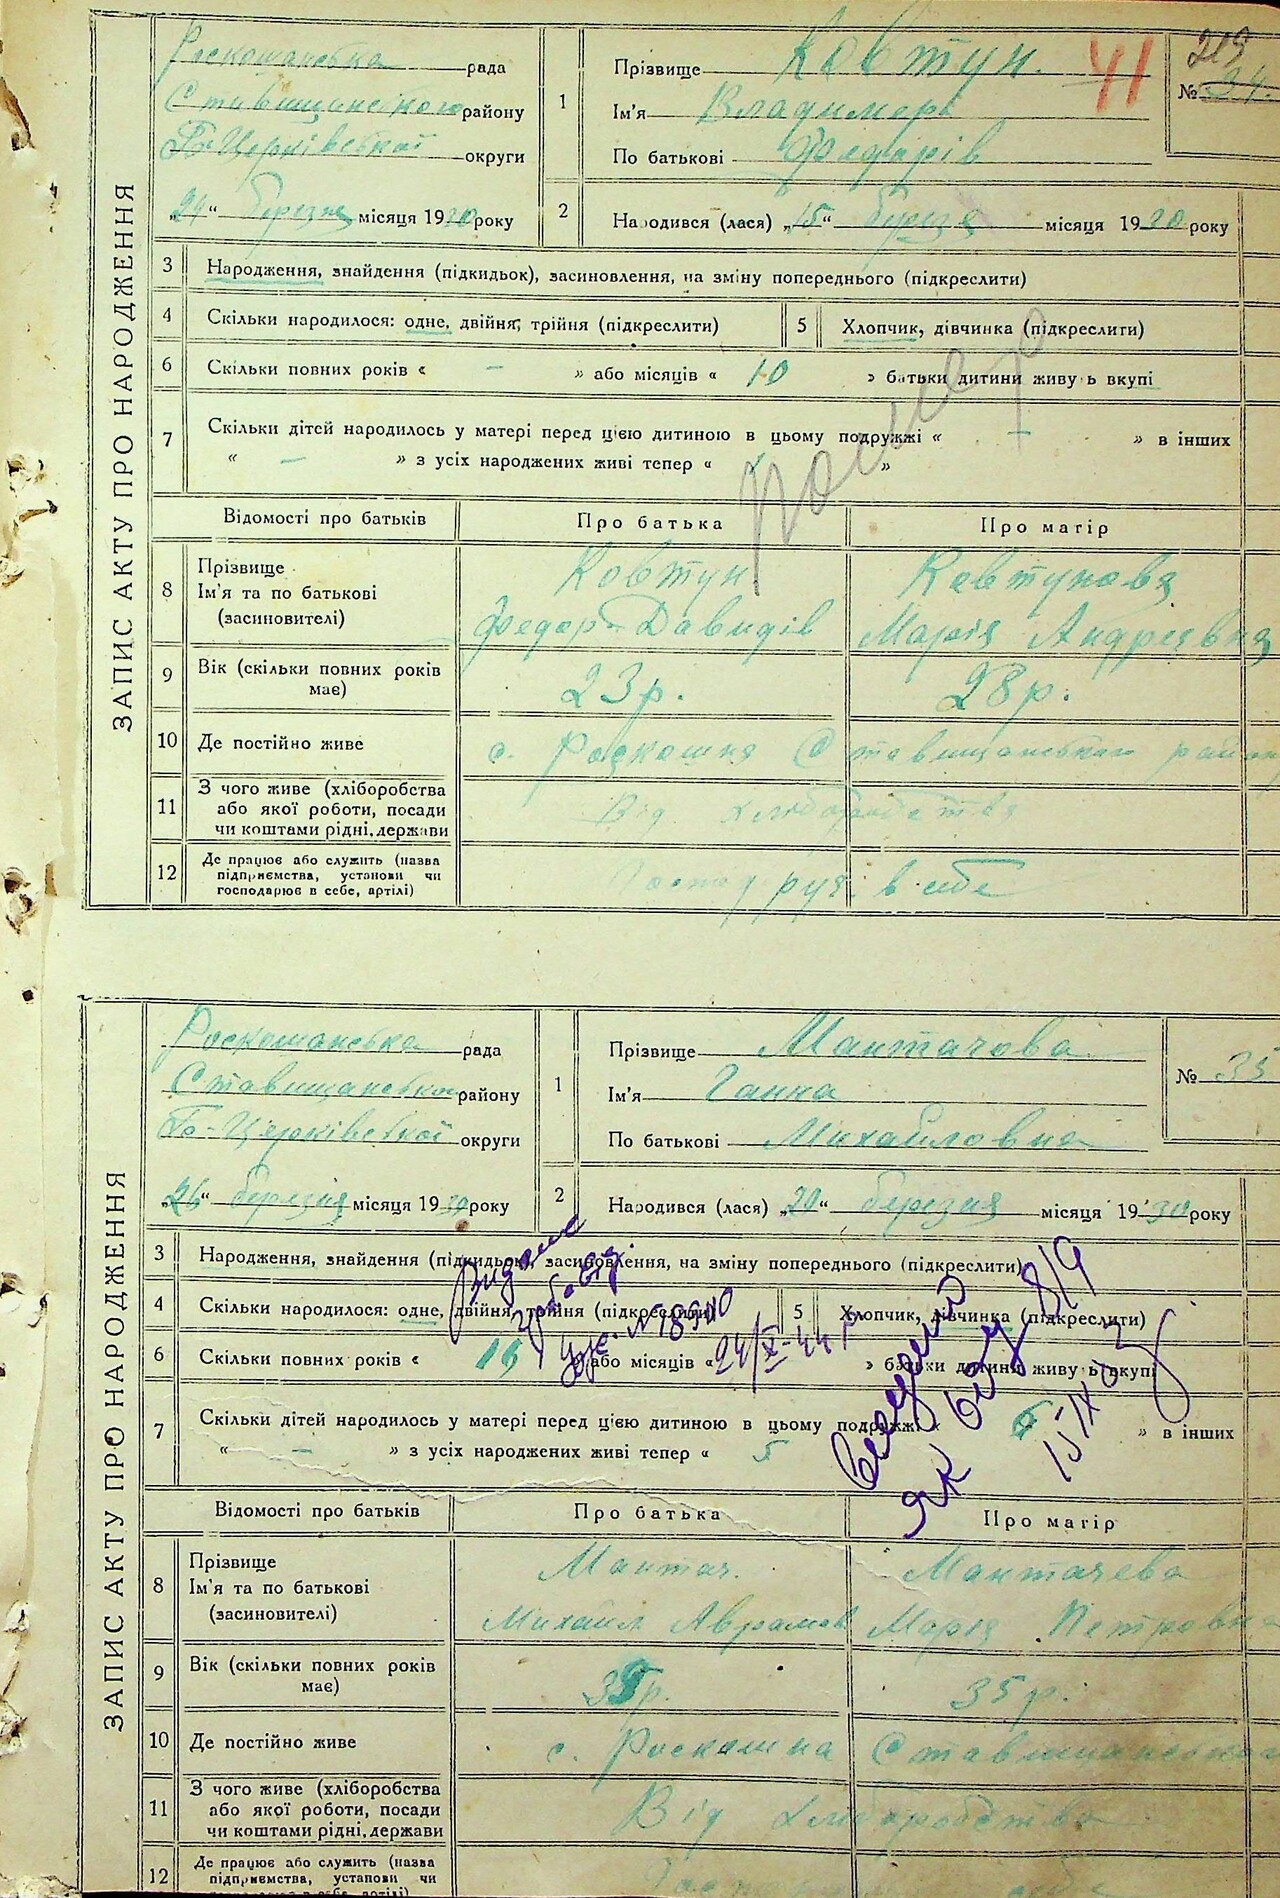 ЗАПИС АКТУ ПРО НАРОДЖЕННЯ
Роскошанська рада
Ставищанського району
Б-Церківської округи
„24“ березня місяця 1930 року
1
Прізвище Ковтун.
Ім'я Владимерь
По батькові Федорів
41
213
№ 34.
2
Народився (лася) „15“ березя місяця 1930 року
3 Народження, знайдення (підкидьок), засиновлення, на зміну попереднього (підкреслити)
4 Скільки народилося: одне, двійня, трійня (підкреслити)
5 Хлопчик, дівчинка (підкреслити)
6 Скільки повних років « – » або місяців « 10 » батьки дитини живуть вкупі
7 Скільки дітей народилось у матері перед цією дитиною в цьому подружжі « – » в інших
« – » з усіх народжених живі тепер « »
помер
Відомості про батьків
Про батька
Про матір
8 Прізвище
Ім'я та по батькові
(засиновителі)
Ковтун
Федор Давидів
Ковтунова
Марія Андреевна
9 Вік (скільки повних років має)
23 р.
28 р.
10 Де постійно живе
с. Роскошна Ставищанського району
11 З чого живе (хліборобства або якої роботи, посади чи коштами рідні, держави
Від хліборобства
12 Де працює або служить (назва підприємства, установи чи господарює в себе, артілі)
в себе
ЗАПИС АКТУ ПРО НАРОДЖЕННЯ
Роскошанська рада
Ставищанської району
Б-Церківської округи
„26“ березня місяця 1930 року
1
Прізвище Мантачова
Ім'я Ганна
По батькові Михайловна
№ 35
2
Народився (лася) „20“ березня місяця 1930 року
3 Народження, знайдення (підкидьок), засиновлення, на зміну попереднього (підкреслити)
4 Скільки народилося: одне, двійня, трійня (підкреслити)
5 Хлопчик, дівчинка (підкреслити)
6 Скільки повних років « 16 » або місяців « » батьки дитини живуть вкупі
7 Скільки дітей народилось у матері перед цією дитиною в цьому подружжі « 6 » в інших
« – » з усіх народжених живі тепер « 5
Видане
24/X-44 р
8/9
Відомості про батьків
Про батька
Про матір
8 Прізвище
Ім'я та по батькові
(засиновителі)
Мантач.
Михайл Аврамов
Мантачева
Марія Петровна
9 Вік (скільки повних років має)
39 р.
35 р.
10 Де постійно живе
с. Роскошна
11 З чого живе (хліборобства або якої роботи, посади чи коштами рідні, держави
Від хліборобства
12 Де працює або служить (назва підприємства, установи чи